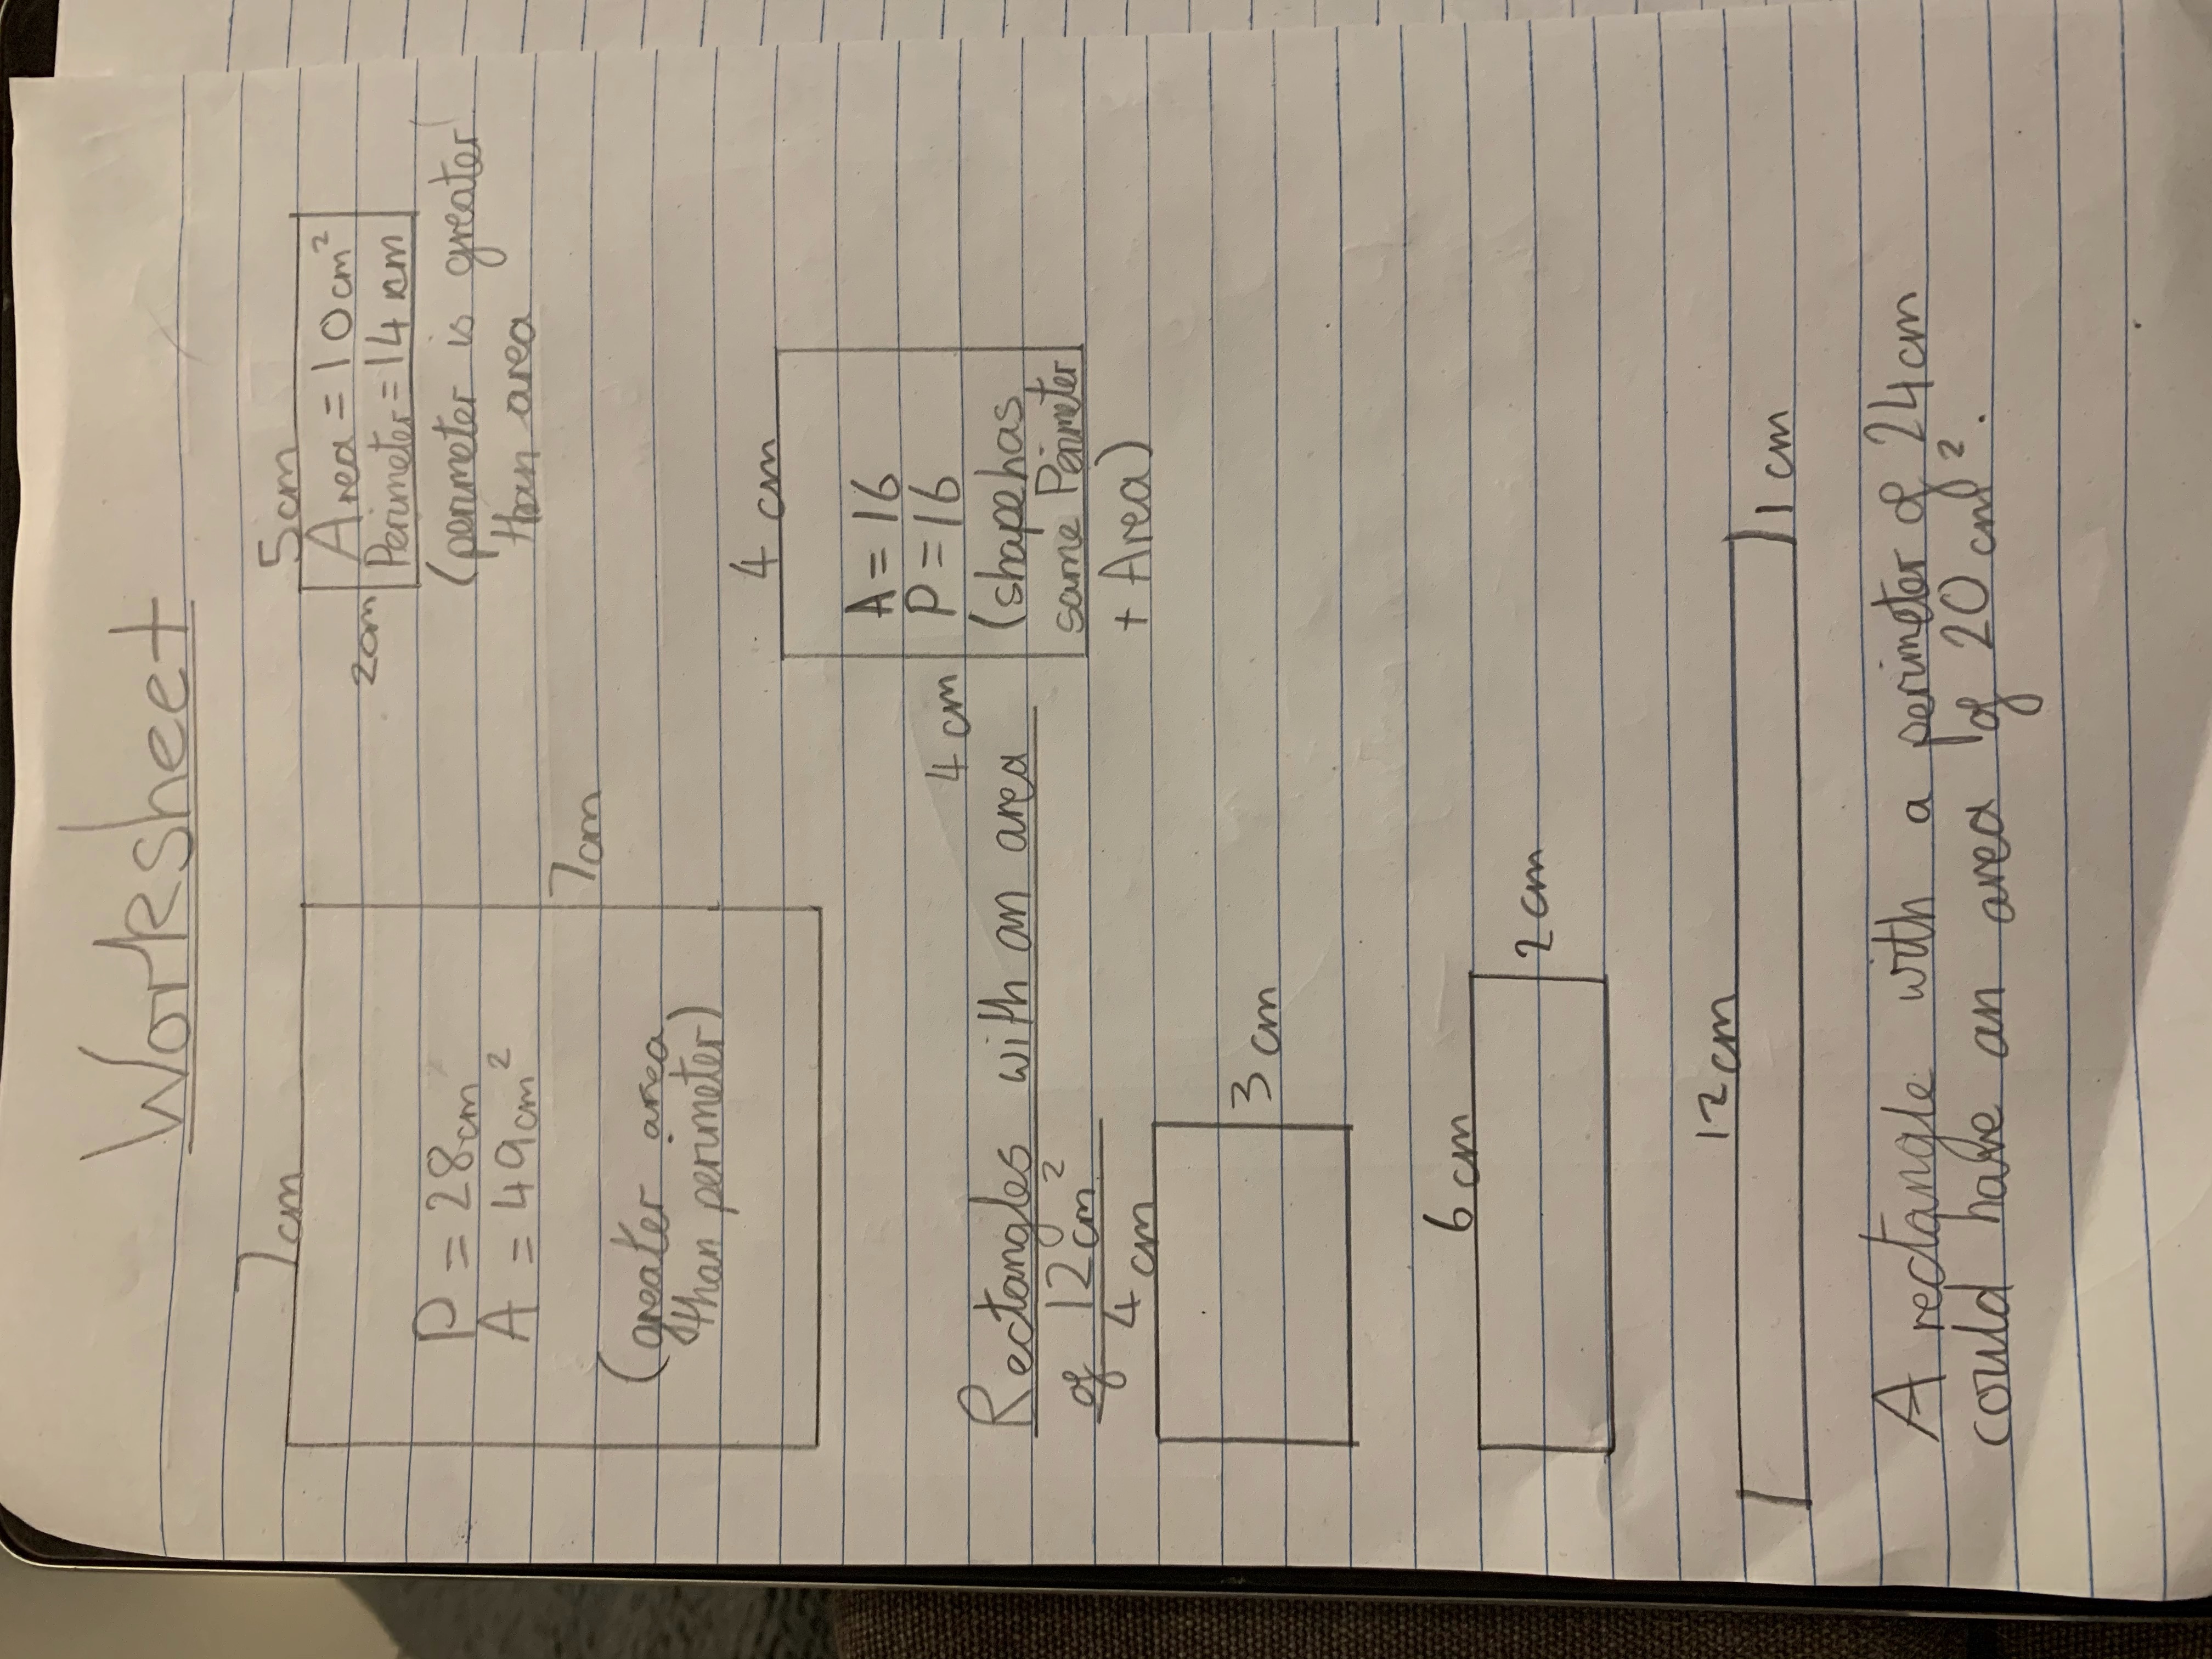 Worksheet
7cm
P = 28cm
A = 49cm²
(greater area
than perimeter)
7cm
5cm
2cm
Area = 10cm²
Perimeter = 14cm
(perimeter is greater
than area
4 cm
4 cm
A = 16
P = 16
(shape has
same Perimeter
+ Area)
Rectangles with an area
of 12cm²
4 cm
3 cm
6 cm
2 cm
12 cm
1 cm
A rectangle with a perimeter of 24cm
could have an area of 20 cm².